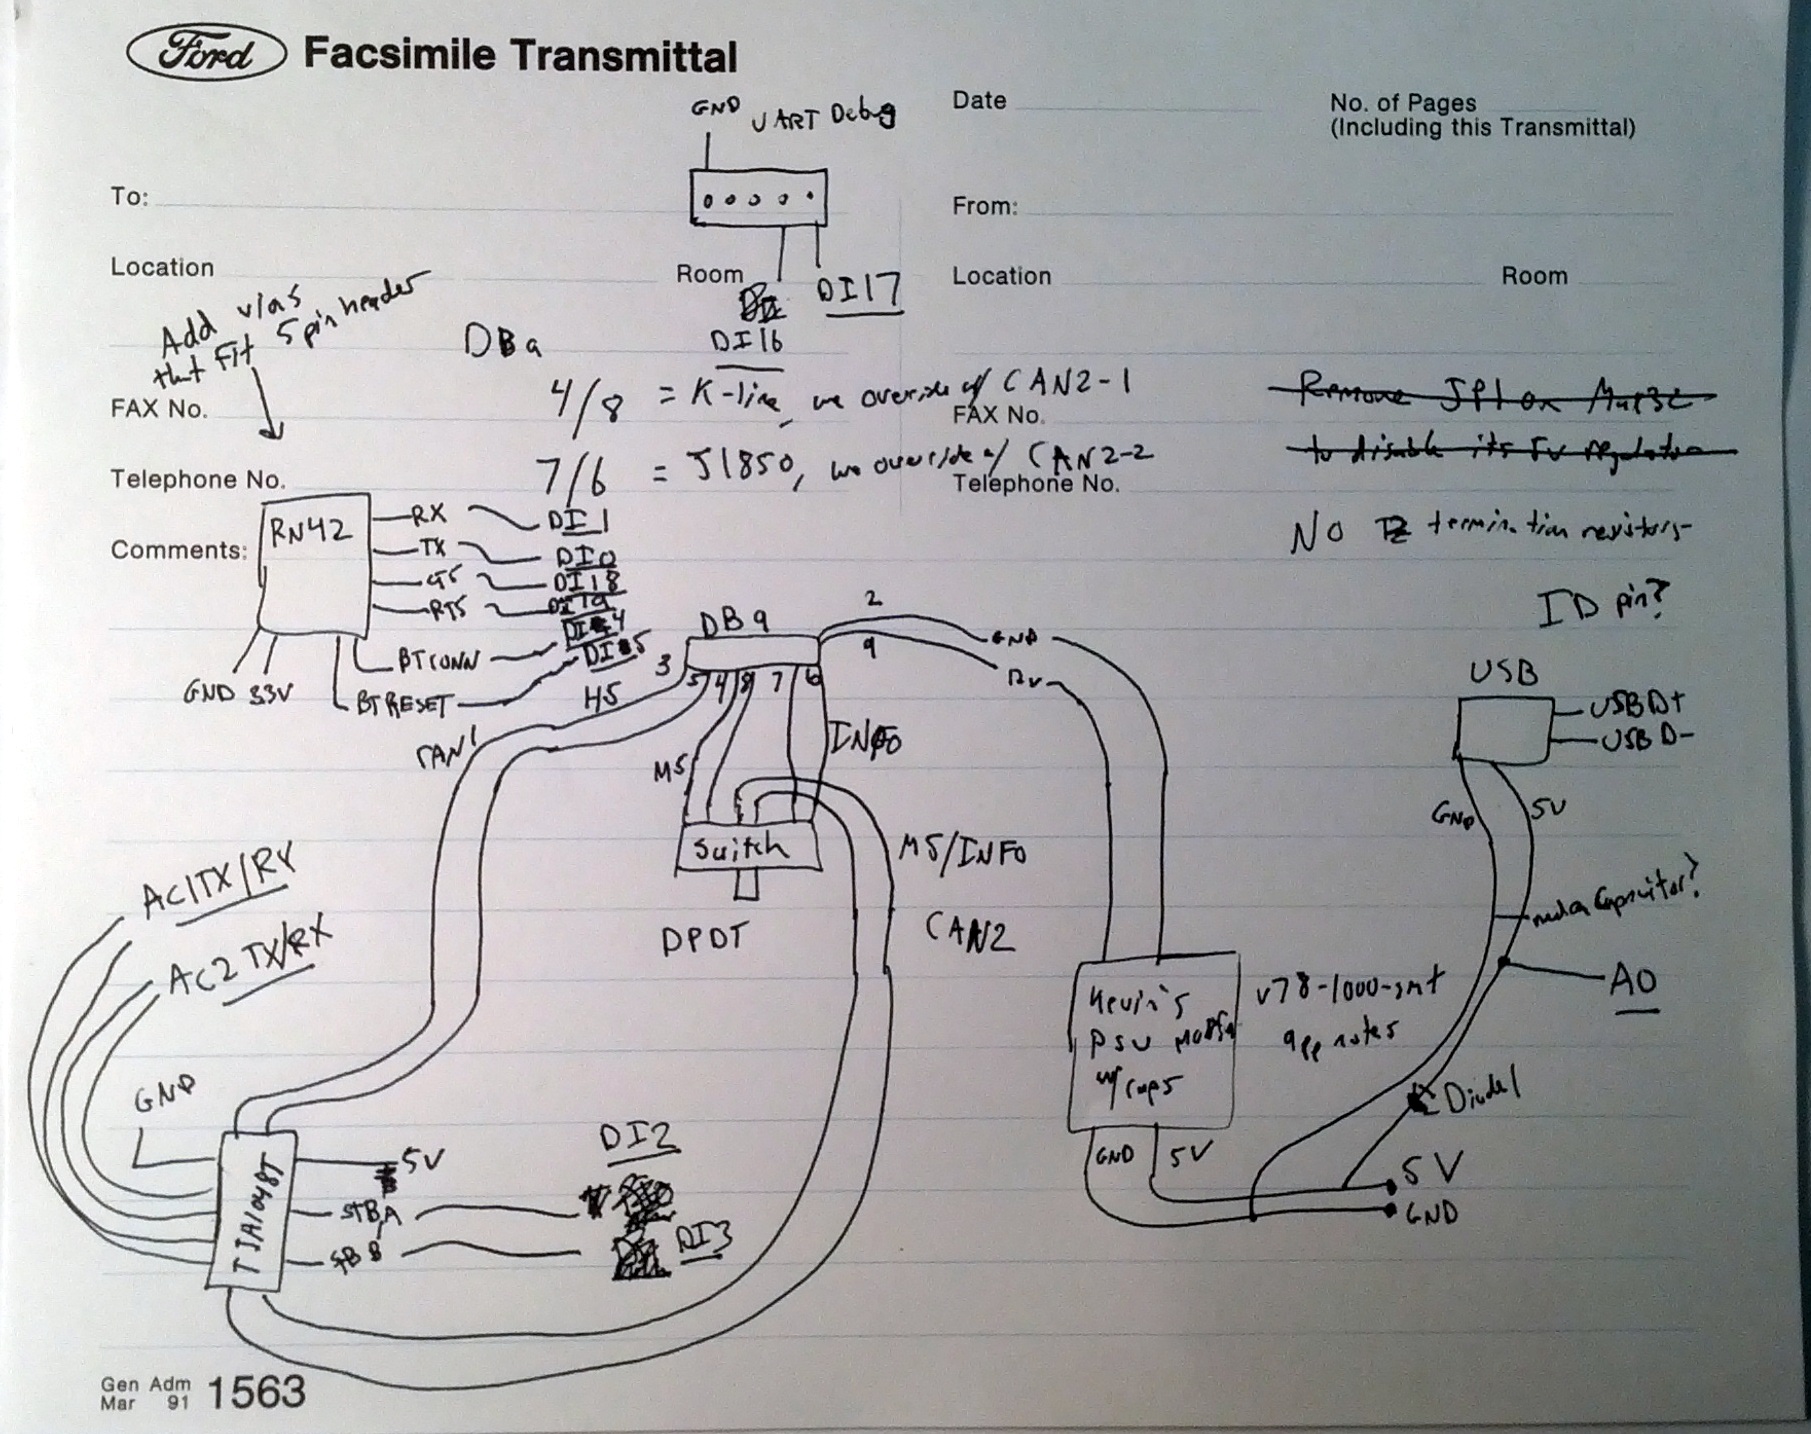 Ford Facsimile Transmittal
GND UART Debug
Date
No. of Pages
(Including this Transmittal)
To:
From:
Location
Room
DI17
Location
Room
DI16
Add vias
that Fit 5 pin header
DB9
FAX No.
4/8 = K-line, we override w/ CAN2-1
FAX No.
Remove JP1 on
to disable its 5v regulator
Telephone No.
7/6 = J1850, we override w/ CAN2-2
Telephone No.
No termination resistors
Comments:
RN42
RX DI1
TX DI0
CTS DI18
RTS DI19
BTCONN DI4
BTRESET DI5
GND 33V
ID pin?
DB9
2
9
GND
12v
3
5 4 8 7 6
HS
CAN1
MS
INFO
USB
USB D+
USB D-
GND
5V
Switch
DPDT
MS/INFO
CAN2
AC1TX/RX
AC2 TX/RX
need a capacitor?
A0
Kevin's
PSU
w/ caps
v78-1000-smt
app notes
Diode
GND
TJA1048T
5V
STBA
STBB
DI2
DI3
GND
5V
5V
GND
Gen Adm
Mar 91
1563